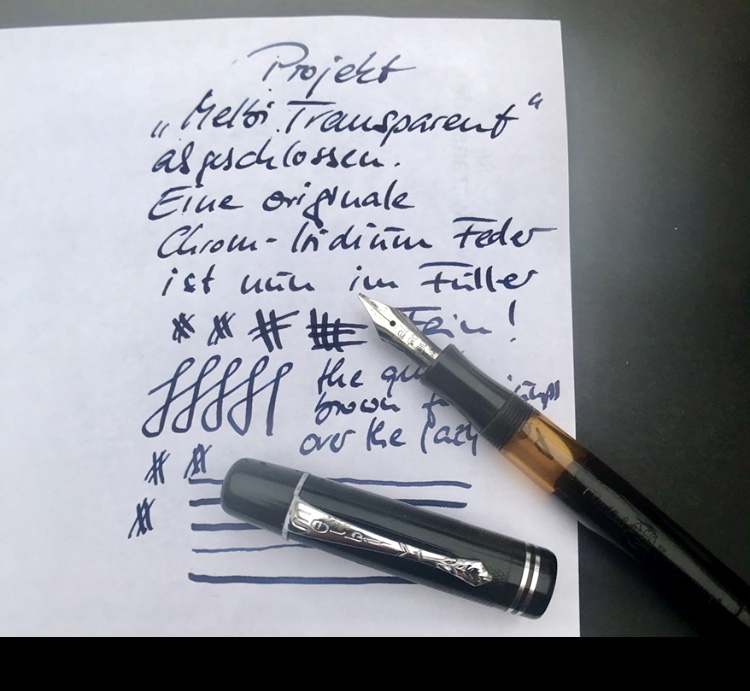 Projekt
„Melbi Transparent“
abgeschlossen.
Eine originale
Chrom-Iridium Feder
ist nun im Füller
Fein!
the
brown
over the lazy